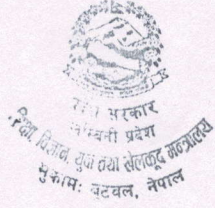 सरकार
लुम्बिनी प्रदेश
विज्ञान, युवा तथा खेलकूद मन्त्रालय
मुकामः बुटवल, नेपाल